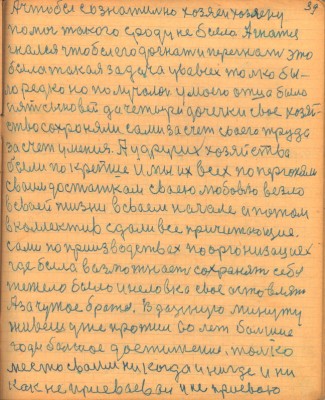 39
А чтобы сознательно хозяеи хозяену
помог такого сроду не было. А знате
гналея чтобы его догнать и перегнать это
была такая задача у бабых только бы-
ло редко но получалог у моего отца было
пять синовей да четыри дочечки свое хозяй-
ство сохроняли сами за счет своего труда
за счет умения. А у других хозяйства
были по крепще и мы их всех попрохали
своим достатком своею любовю везло
в своей жизни в своем начале и потом
в коллектив сдали все причетающия.
сами по призводствах по организациех
где была возможнаст сохранять себя
тежело было и неловко свое оставлять
А за чужое брать. В данную минуту
живеш уже прожил 60 лет большие
годы большое достижение. только
место своим никогда и нигде и ни
как не приеваев а и не приеваю